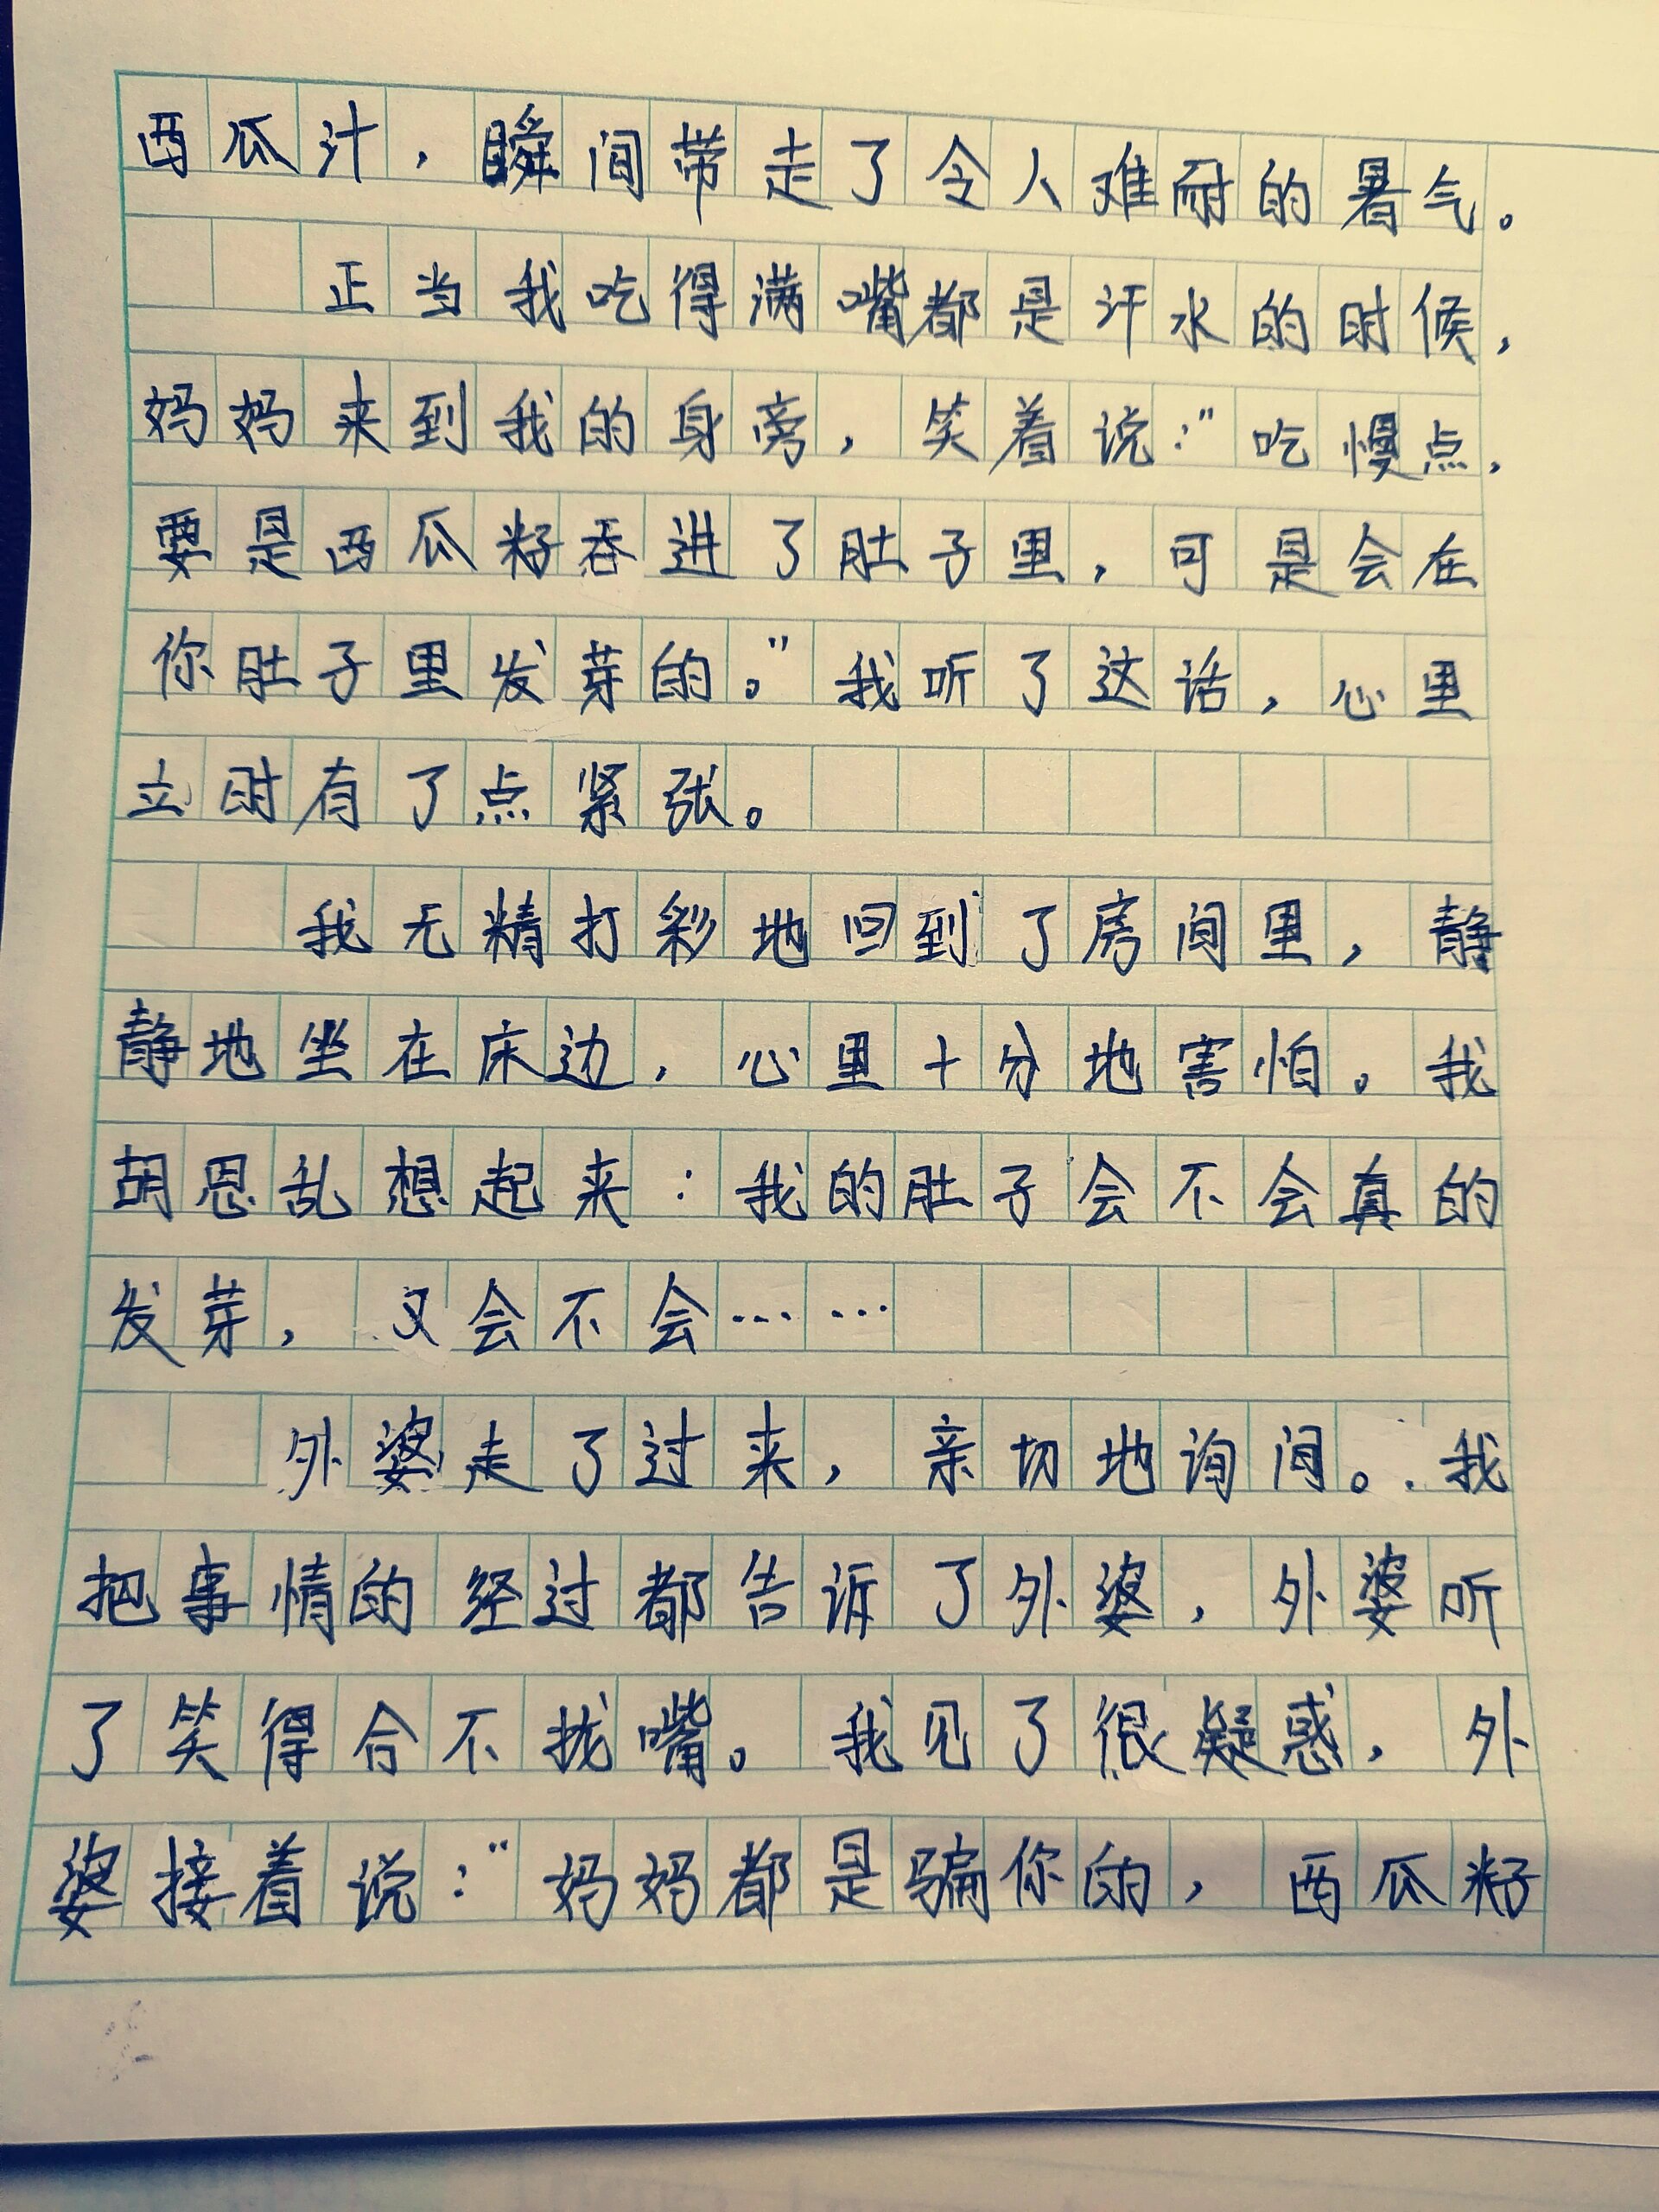 西瓜汁，瞬间带走了令人难耐的暑气。
正当我吃得满嘴都是汗水的时候，
妈妈来到我的身旁，笑着说："吃慢点，
要是西瓜籽吞进了肚子里，可是会在
你肚子里发芽的。"我听了这话，心里
立时有了点紧张。
我无精打彩地回到了房间里，静
静地坐在床边，心里十分地害怕。我
胡思乱想起来：我的肚子会不会真的
发芽，又会不会……
外婆走了过来，亲切地询问。我
把事情的经过都告诉了外婆，外婆听
了笑得合不拢嘴。我见了很疑惑，外
婆接着说："妈妈都是骗你的，西瓜籽